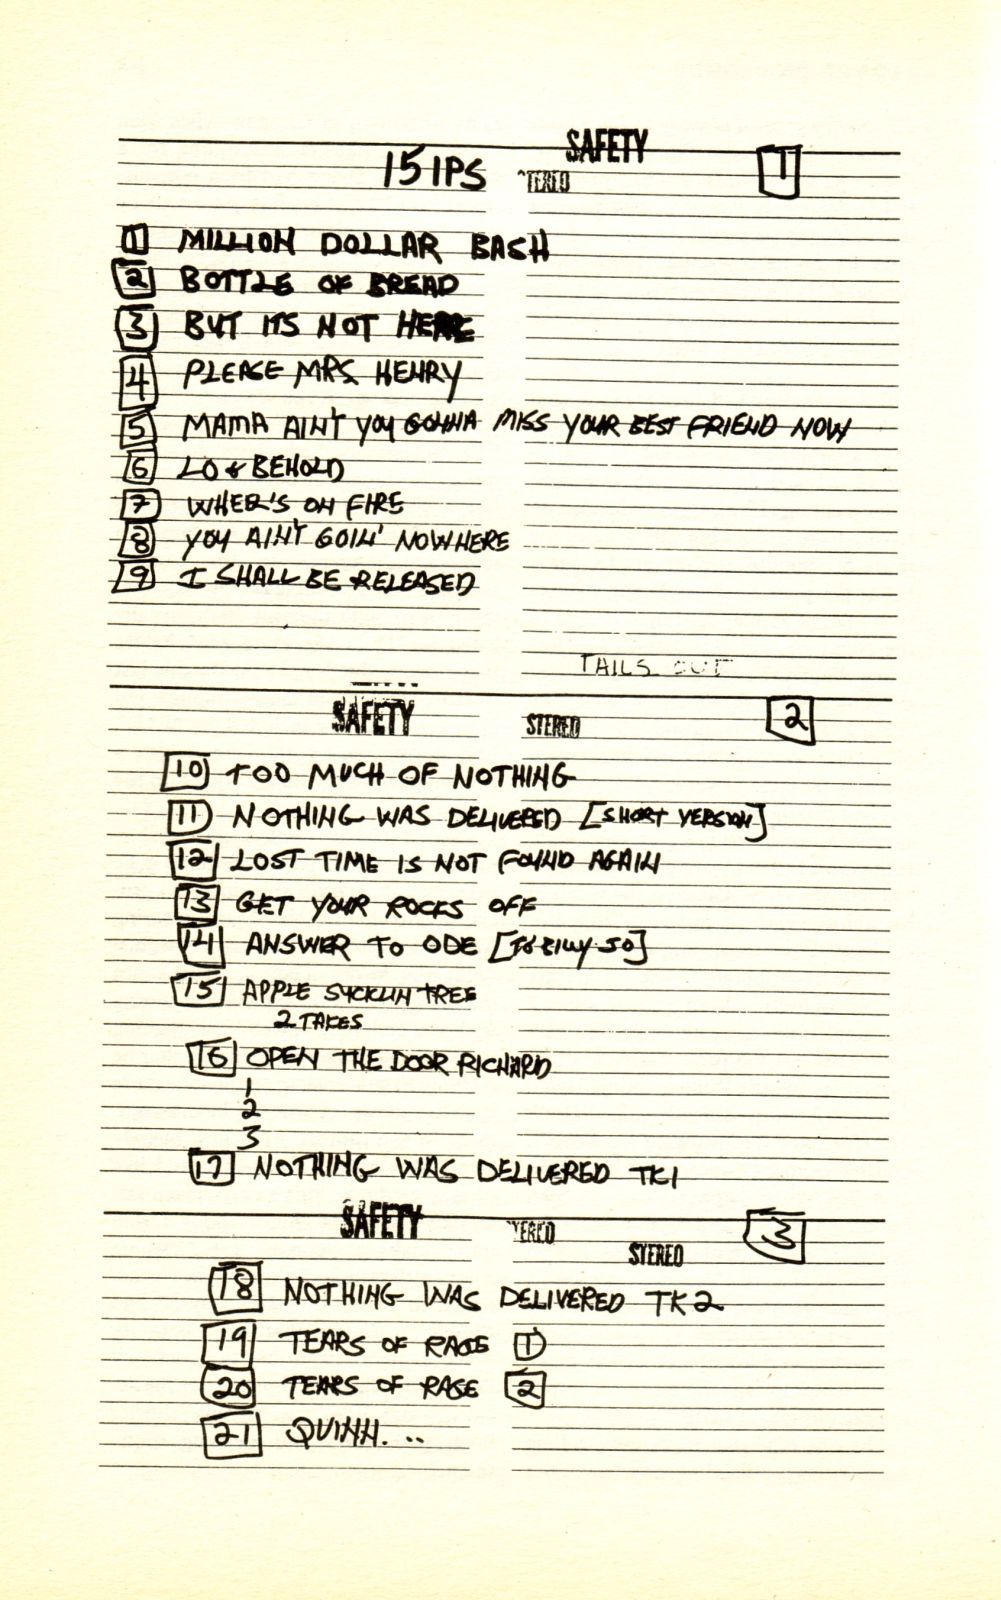 SAFETY
15 IPS TEREO 1
1 MILLION DOLLAR BASH
2 BOTTLE OF BREAD
3 BUT ITS NOT HERE
4 PLEASE MRS. HENRY
5 MAMA AIN'T YOU GONNA MISS YOUR BEST FRIEND NOW
6 LO & BEHOLD
7 WHEEL'S ON FIRE
8 YOU AIN'T GOIN' NOWHERE
9 I SHALL BE RELEASED
TAILS OUT
SAFETY STEREO 2
10 TOO MUCH OF NOTHING
11 NOTHING WAS DELIVERED [SHORT VERSION]
12 LOST TIME IS NOT FOUND AGAIN
13 GET YOUR ROCKS OFF
14 ANSWER TO ODE
15 APPLE SUCKLIN TREE
2 TAKES
16 OPEN THE DOOR RICHARD
1
2
3
17 NOTHING WAS DELIVERED TK1
SAFETY TEREO 3
STEREO
18 NOTHING WAS DELIVERED TK2
19 TEARS OF RAGE 1
20 TEARS OF RAGE 2
21 QUINN. ..